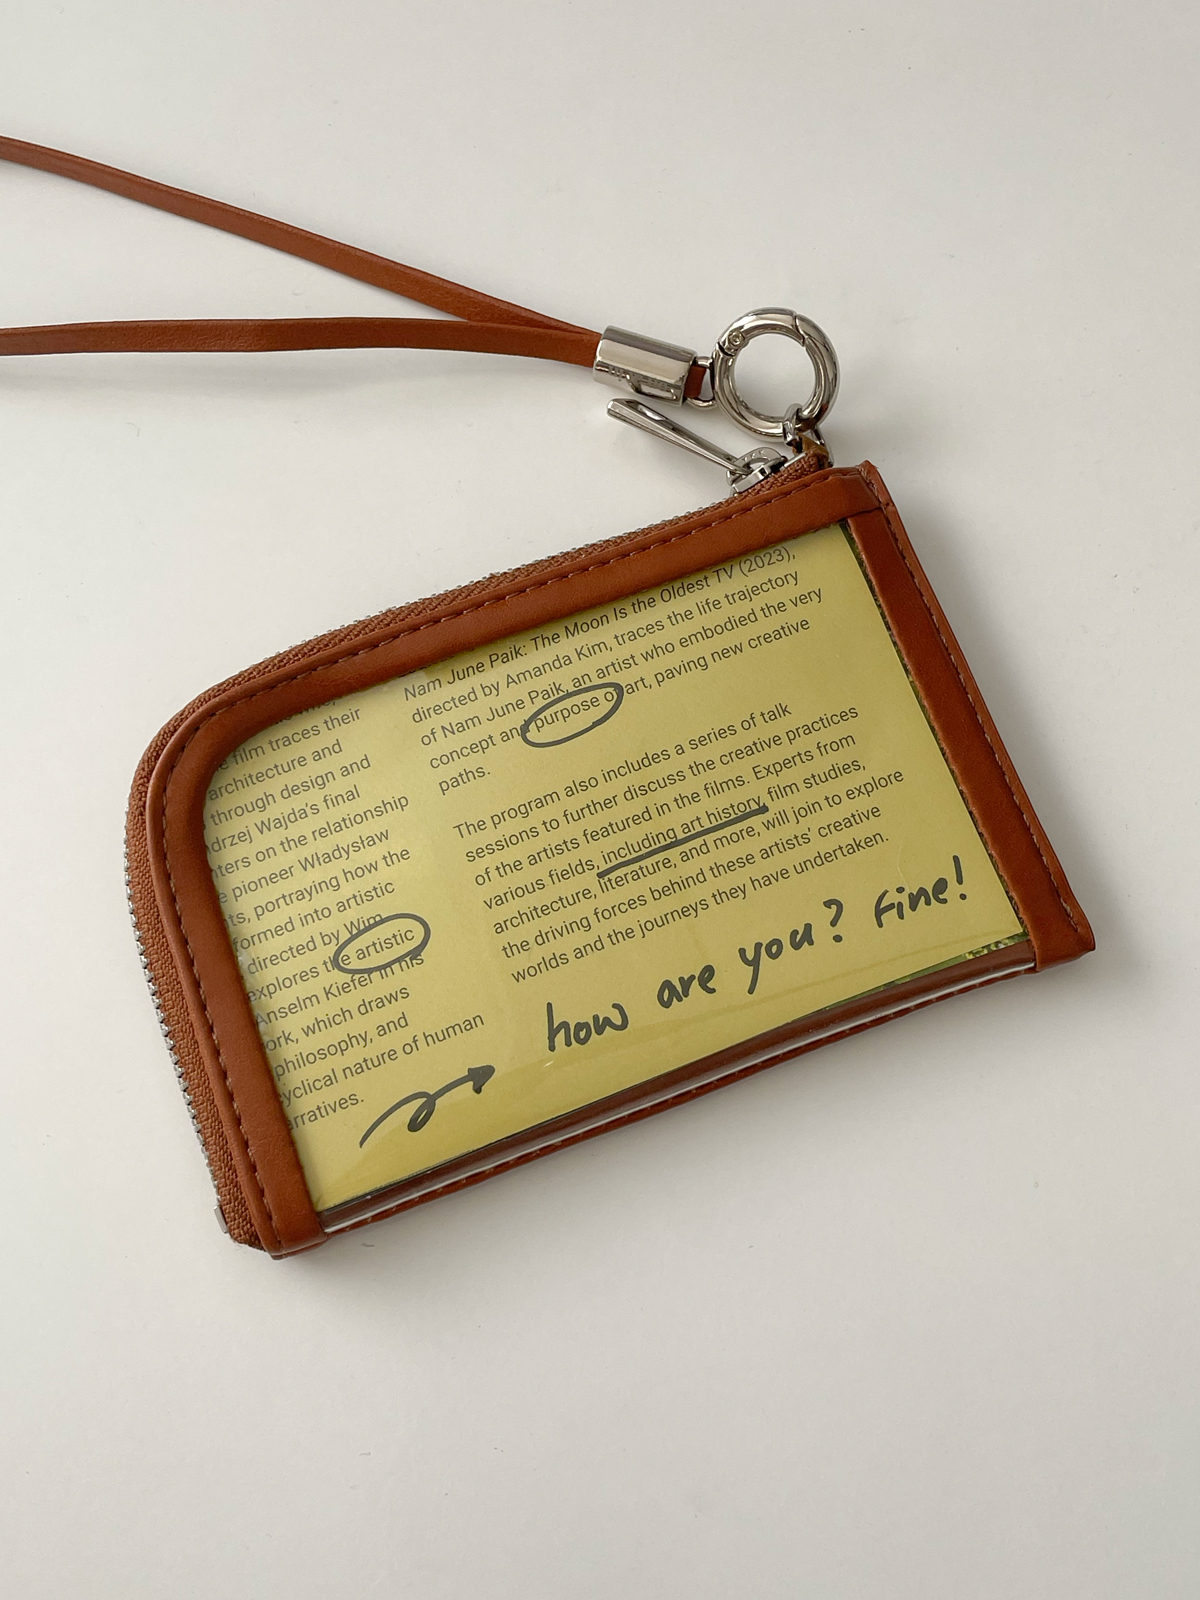 film traces their
architecture and
through design and
drzej Wajda's final
ters on the relationship
pioneer Władysław
ts, portraying how the
formed into artistic
directed by Wim
explores the artistic
Anselm Kiefer in his
ork, which draws
philosophy, and
yclical nature of human
rratives.
Nam June Paik: The Moon Is the Oldest TV (2023),
directed by Amanda Kim, traces the life trajectory
of Nam June Paik, an artist who embodied the very
concept and purpose of art, paving new creative
paths.
The program also includes a series of talk
sessions to further discuss the creative practices
of the artists featured in the films. Experts from
various fields, including art history, film studies,
architecture, literature, and more, will join to explore
the driving forces behind these artists' creative
worlds and the journeys they have undertaken.
how are you? Fine!